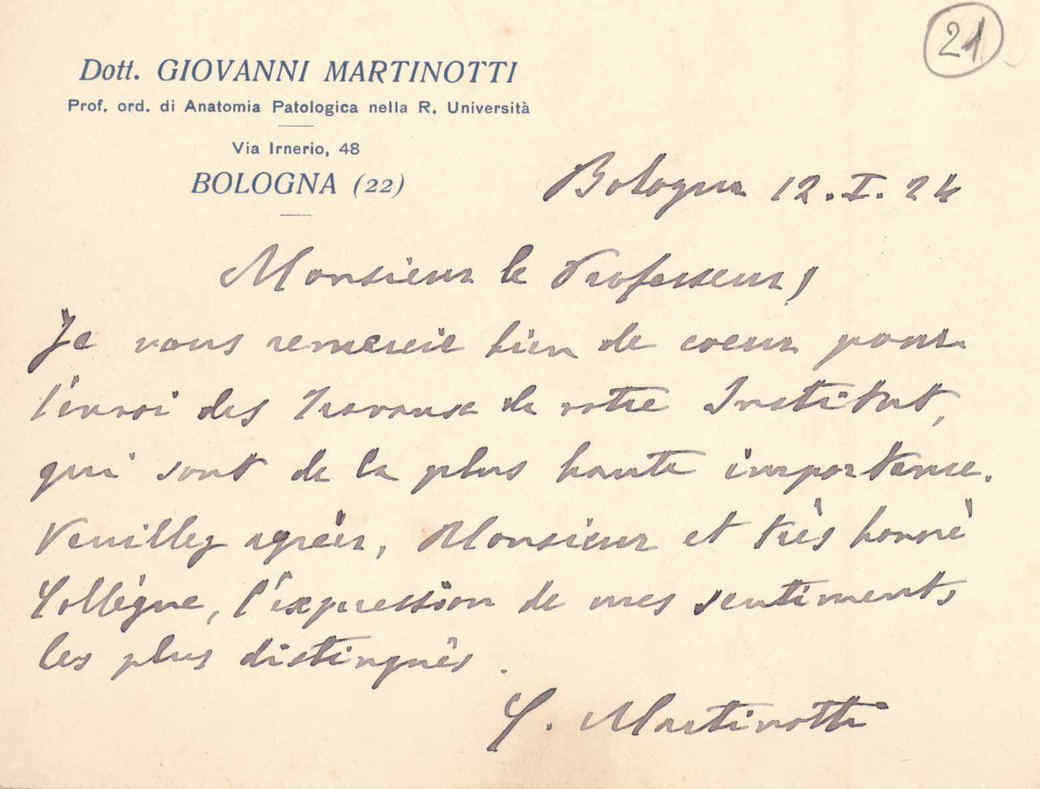 21
Dott. GIOVANNI MARTINOTTI
Prof. ord. di Anatomia Patologica nella R. Università
Via Irnerio, 48
BOLOGNA (22)
Bologna 12. I. 24
Monsieur le Professeur,
Je vous remercie bien de coeur pour
l'envoi des Travaux de votre Institut,
qui sont de la plus haute importance.
Veuillez agréer, Monsieur et très honoré
Collègue, l'expression de mes sentiments
les plus distingués.
G. Martinotti